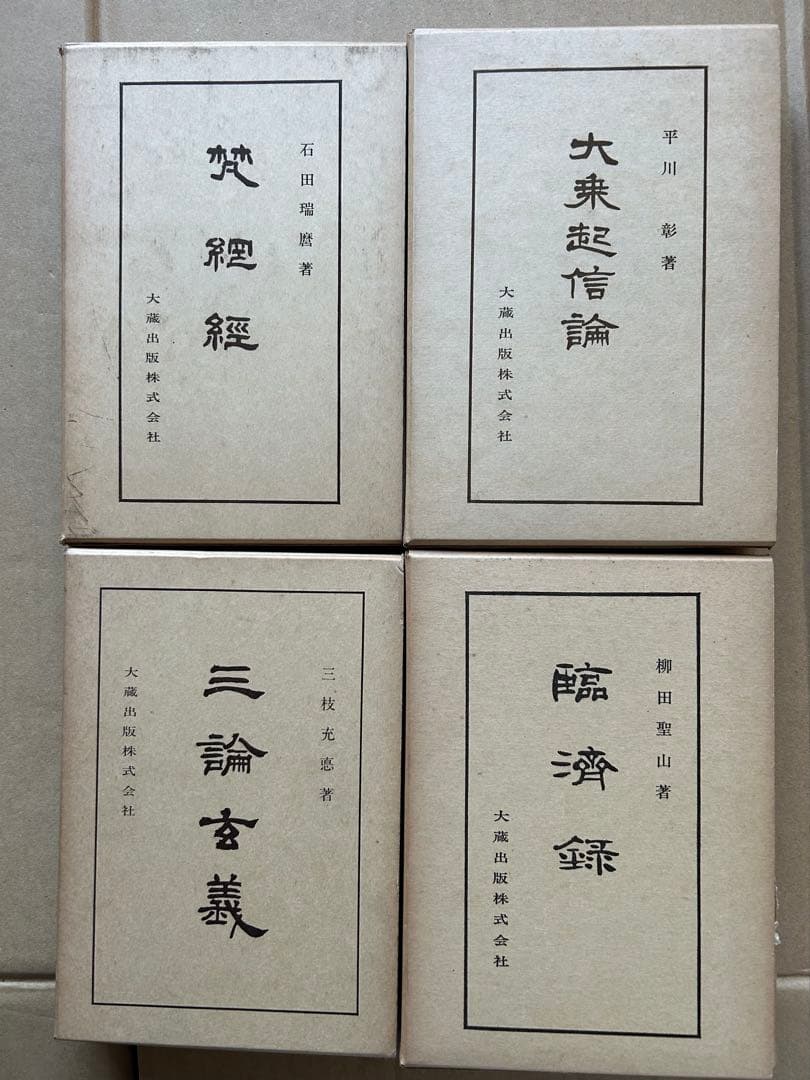 石田瑞麿著
梵網經
大蔵出版株式会社
平川彰著
大乗起信論
大蔵出版株式会社
三枝充悳著
三論玄義
大蔵出版株式会社
柳田聖山著
臨済録
大蔵出版株式会社